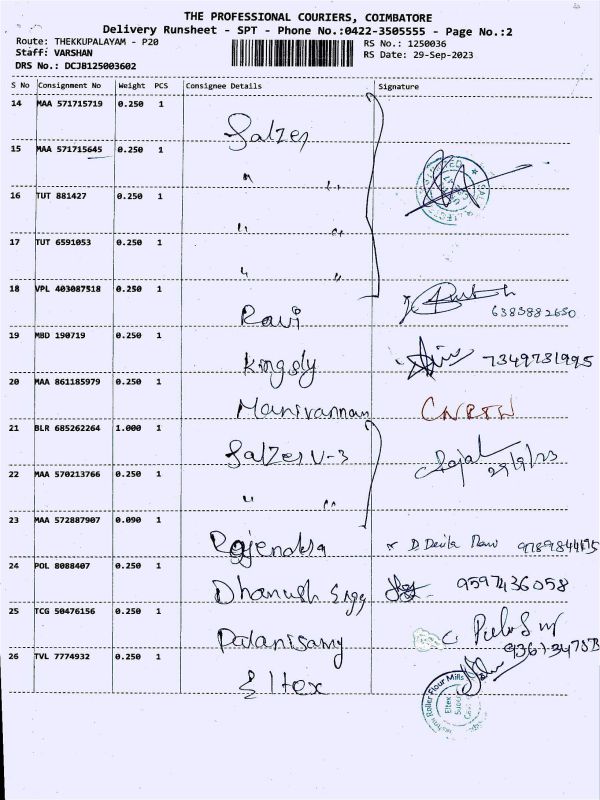 THE PROFESSIONAL COURIERS, COIMBATORE
Delivery Runsheet - SPT - Phone No.:0422-3505555 - Page No.:2
Route: THEKKUPALAYAM - P20
RS No.: 1250036
Staff: VARSHAN
RS Date: 29-Sep-2023
DRS No.: DCJB125003602
S No Consignment No Weight PCS Consignee Details Signature
14 MAA 571715719 0.250 1 Salzer
15 MAA 571715645 0.250 1 " "
16 TUT 881427 0.250 1 " "
17 TUT 6591053 0.250 1 " "
18 VPL 403087518 0.250 1 Ravi 6383882650
19 MBD 190719 0.250 1 Kingsly 7349731995
20 MAA 861185979 0.250 1 Manivannan
21 BLR 685262264 1.000 1 Salzer U-3 29/9/23
22 MAA 570213766 0.250 1 " "
23 MAA 572887907 0.090 1 Rajendra
24 POL 8088407 0.250 1 Dhanush Engg 9597436058
25 TCG 50476156 0.250 1 Palanisamy
26 TVL 7774932 0.250 1 Eltex
Roller Flour Mills
Eltex